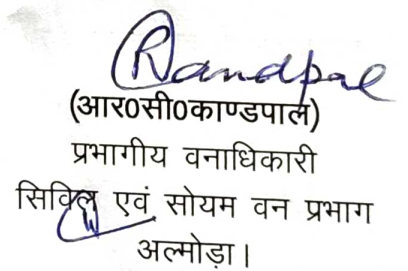 (आर0सी0काण्डपाल)
प्रभागीय वनाधिकारी
सिविल एवं सोयम वन प्रभाग
अल्मोड़ा।